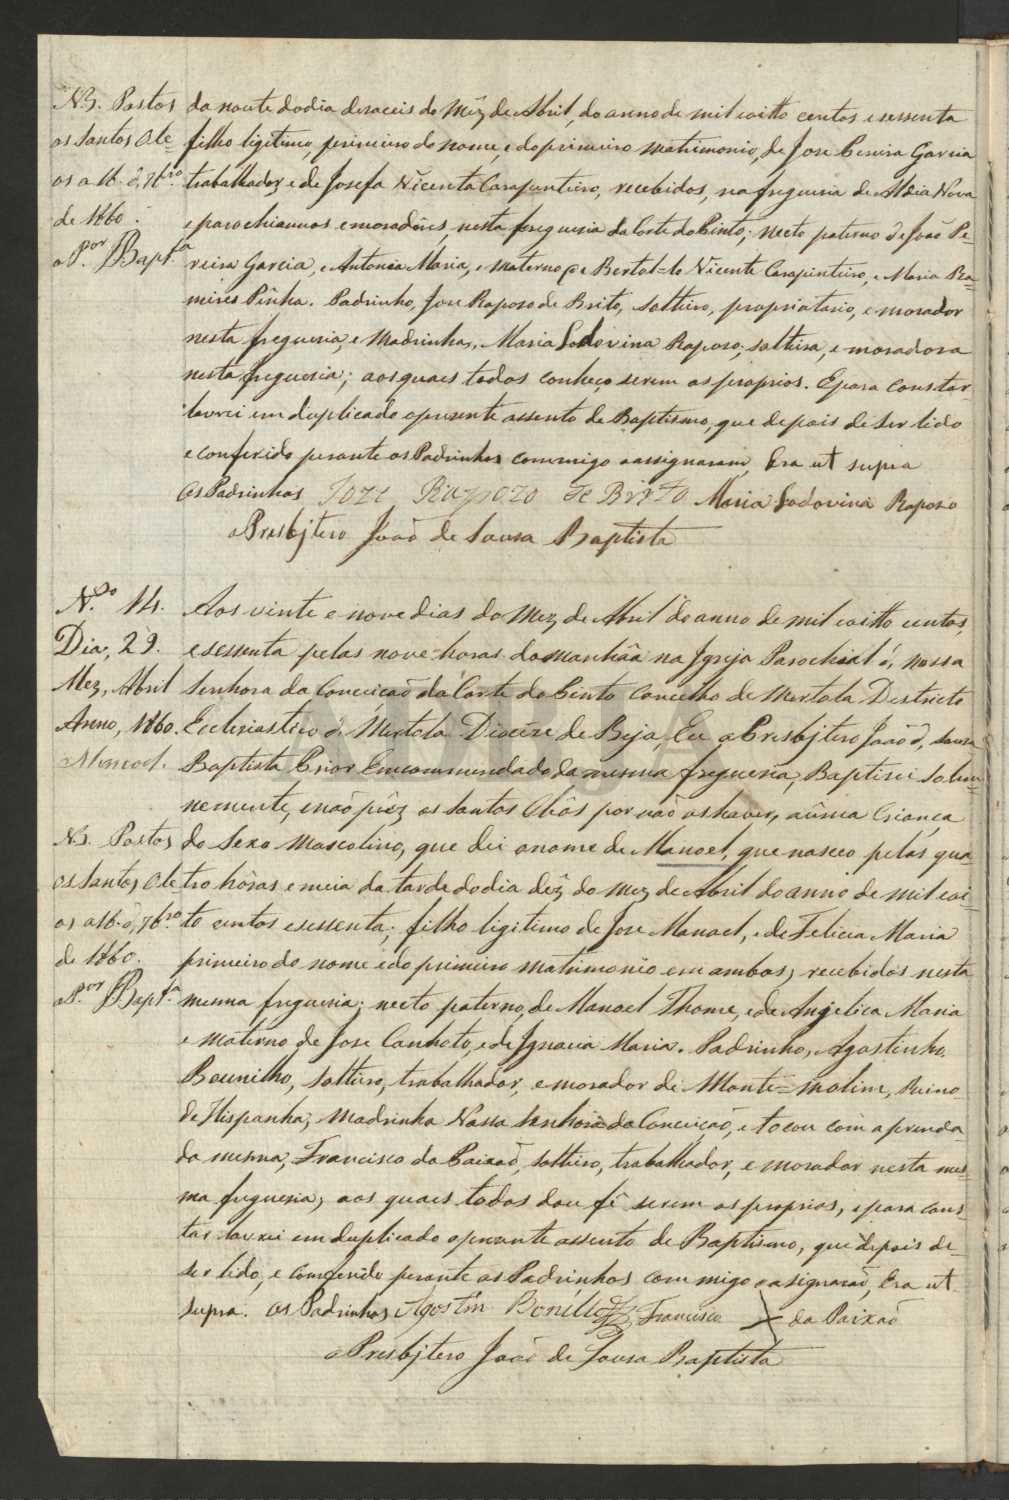 N.B. Postos
os Santos Ole-
os a 16 d' 7b.ro
de 1860.
o P.or JSBapt.a
da noute do dia deraceis do Mêz de Abril, do anno de mil coitto centos e sessenta
filho ligitimo, primeiro do nome, e do primeiro matrimonio, de Jose Pereira Garcia
trabalhador, e de Josefa Vicenta Carapinteiro, recebidos, na freguesia de Aldeia Nova
e parochiannos e moradôres, nesta freguesia da Corte do Pinto; Neeto paterno de João Pe-
reira Garcia, e Antonia Maria, e materno de Bertol=to Vicente Carapinteiro, e Maria Ra-
mires Pinha. Padrinho, Jose Raposo de Brito, solteiro, propriatario, e morador
nesta freguesia, e Madrinha, Maria Lodovina Raposo, solteira, e moradora
nesta freguesia; aos quaes todos conheço serem os proprios. E para constar
lavrei em duplicado o presente assento de Baptismo, que depois de ser lido
e conferido perante os Padrinhos commigo o assignaram, Era ut supra
Os Padrinhos Joze Rapozo de Brito Maria Lodovina Raposo
o Presbjtero João de Sousa Baptista
N.o 14.
Dia, 29.
Mez, Abril
Anno, 1860.
Manoel.
N.B. Postos
os Santos Ole
os a 16 d' 7b.ro
de 1860.
o P.or JSBapt.a
Aos vinte e nove dias do Mez de Abril do anno de mil coitto centos,
e sessenta pelas nove horas da manhãa na Igreja Parochial d' Nossa
Senhora da Conceicão da Corte do Pinto Concelho de Mertola Destricto
Ecclesiastico d' Mertola Diocêze de Beja, Eu o Presbjtero João d' Sousa
Baptista Prior Emcommendado da mesma freguesia, Baptisei Solem-
nemente, e não pûz os Santos Olios por não os haver, a uma Criança
do Sexo Mascolino, que dei o nome de Manoel, que nasceo pelas qua-
tro hôras e meia da tarde do dia dêz do Mez de Abril do anno de mil coi-
to centos e sessenta; filho ligitimo de Jose Manoel, e de Felicia Maria
primeiro do nome e do primeiro matrimonio em ambos, recebidos nesta
mesma freguesia; neeto paterno, de Manoel Thome, e de Angelica Maria
e materno de Jose Canhoto, e de Ignacia Maria. Padrinho, Agostinho
Bounilho, solteiro, trabalhador, e morador de Monte=molim, Reino
de Hispanha; Madrinha Nossa Senhora da Conceicão, e tocou com a prenda
da mesma, Francisco da Paixão, solteiro, trabalhador, e morador nesta mes-
ma freguesia, aos quaes todos dou fê serem os proprios, e para cons-
tar lavrei em duplicado o presente assento de Baptismo, que depois de
ser lido, e conferido perante os Padrinhos commigo o asignarão, Era ut
supra. Os Padrinhos Agostin Bonillo Francisco X da Paixão
o Presbjtero João de Sousa Baptista